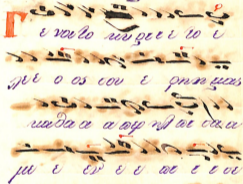 Γ ε νοι το κυ ρι ε ε το ε
λε ο ος σου ε φη η μας
κα θα α α περ ηλ πι σα α
με ε εν ε ε